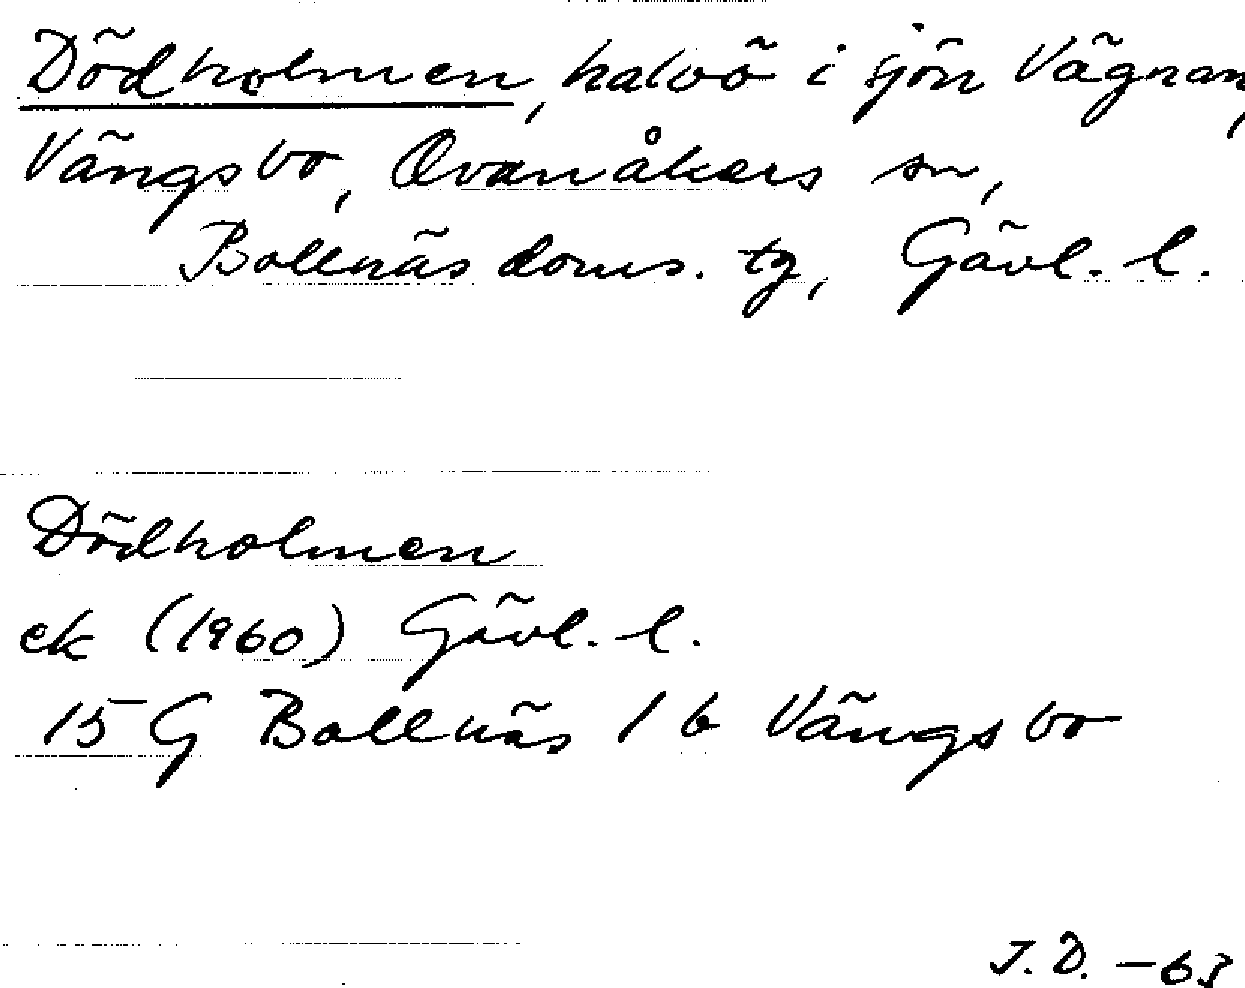 Dödholmen, halvö i sjön Vägnan,
Vängsbo, Ovanåkers sn,
Bollnäs doms. tg, Gävl. l.
Dödholmen
ek (1960) Gävl. l.
15 G Bollnäs 1 b Vängsbo
J. D. - 63